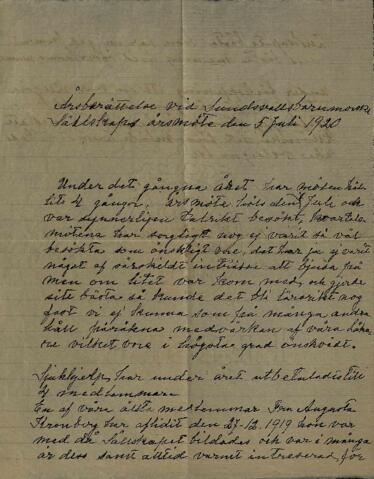 Årsberättelse vid Sundsvalls barnmorske
Sällskaps årsmöte den 5 Juli 1920
Under det gångna året har möten hål-
lits 4 gånger. Årsmöte hölls den Juli och
var synnerligen talrikt besökt, kvartals-
mötena har sorgligt nog ej varit så väl
besökta som önskligt vore, det har ju ej varit
något af särskildt intresse att bjuda på
men om litet var kom med, och gjorde
sitt bästa så kunde det bli lärorikt nog
fast vi ej kunna som på många andra
håll påräkna medvärkan af våra läka-
re vilket vore i högsta grad önskvärdt.
Sjukhjelp har under året utbetalats till
4 medlemmar.
En af våra äldta medlemmar Fru Augusta
Kronberg har aflidit den 27-12. 1919 hon var
med då Sällskapet bildades och var i många
år dess samt alltid varmt intresserad för